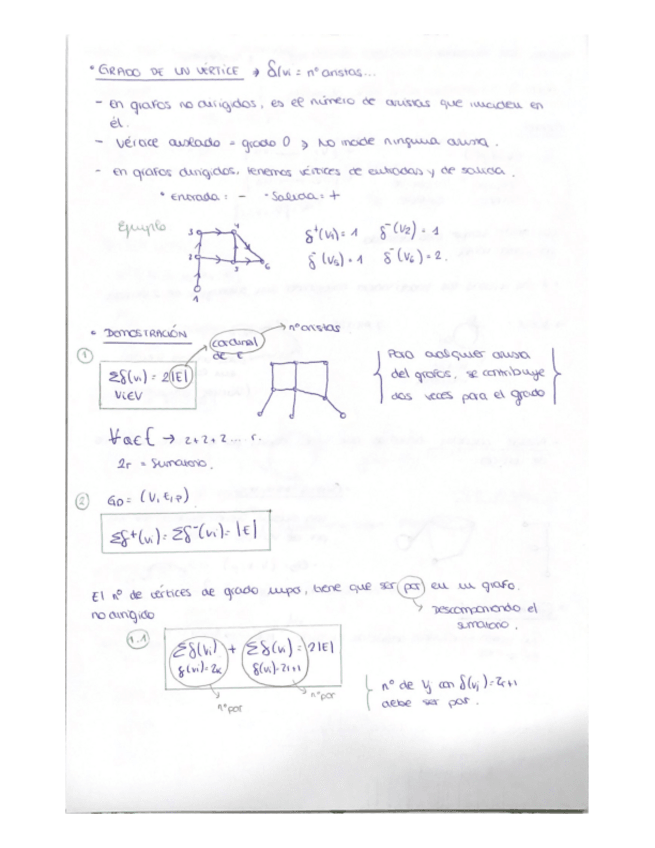 • GRADO DE UN VÉRTICE → δ(vi = nº aristas...
- en grafos no dirigidos, es el número de aristas que inciden en
él.
- vértice aislado = grado 0 → No incide ninguna arista.
- en grafos dirigidos, tenemos vértices de entradas y de salida.
• Entrada: - • Salida: +
Ejemplo
δ⁺(v₁) = 1 δ⁻(v₂) = 1
δ⁻(v₅) = 1 δ⁻(v₆) = 2.
3 4
2 5 6
1
• DEMOSTRACIÓN
cardinal de E → nº aristas
① Σδ(vi) = 2|E|
vi∈V
Para cualquier arista
del grafos, se contribuye
dos veces para el grado
∀a∈E → 2+2+2... r.
2r = sumatorio.
② GD = (V, E, φ)
Σδ⁺(vi) = Σδ⁻(vi) = |E|
El nº de vértices de grado impar, tiene que ser par en un grafo.
no dirigido
Descomponiendo el
sumatorio.
1.1
Σδ(vi) + Σδ(vi) = 2|E|
δ(vi)=2k δ(vi)=2r+1
nº par nº par
nº de vj con δ(vj)=2r+1
debe ser par.